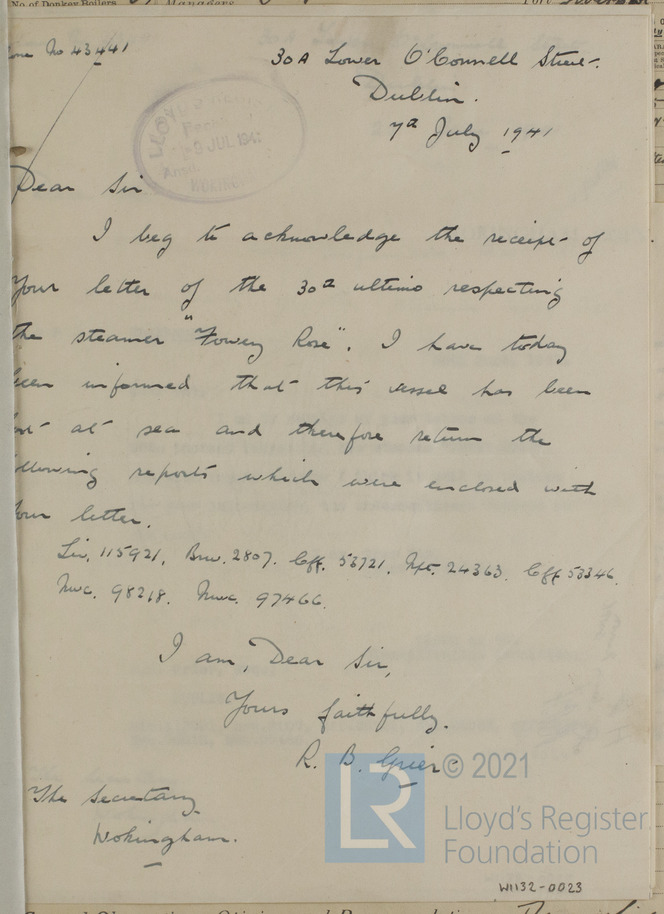 No of Donkey Boilers
Managers
Port
No 43441
30A Lower O'Connell Street.
Dublin.
7th July 1941
LLOYD'S
9 JUL 1941
WOKING
Dear Sir
I beg to acknowledge the receipt of
Your letter of the 30th ultimo respecting
the steamer "Fowey Rose". I have today
been informed that this vessel has been
at sea and therefore return the
reports which were enclosed with
Your letter.
Liv. 115921. Brw. 2807. Cff. 53721. Npt. 24363. Cff 53346.
Nwc. 98218. Nwc. 97466.
I am, Dear Sir,
Yours faithfully.
R. B. Grier
The Secretary
Wokingham.
© 2021
LR
Lloyd's Register
Foundation
W1132-0023